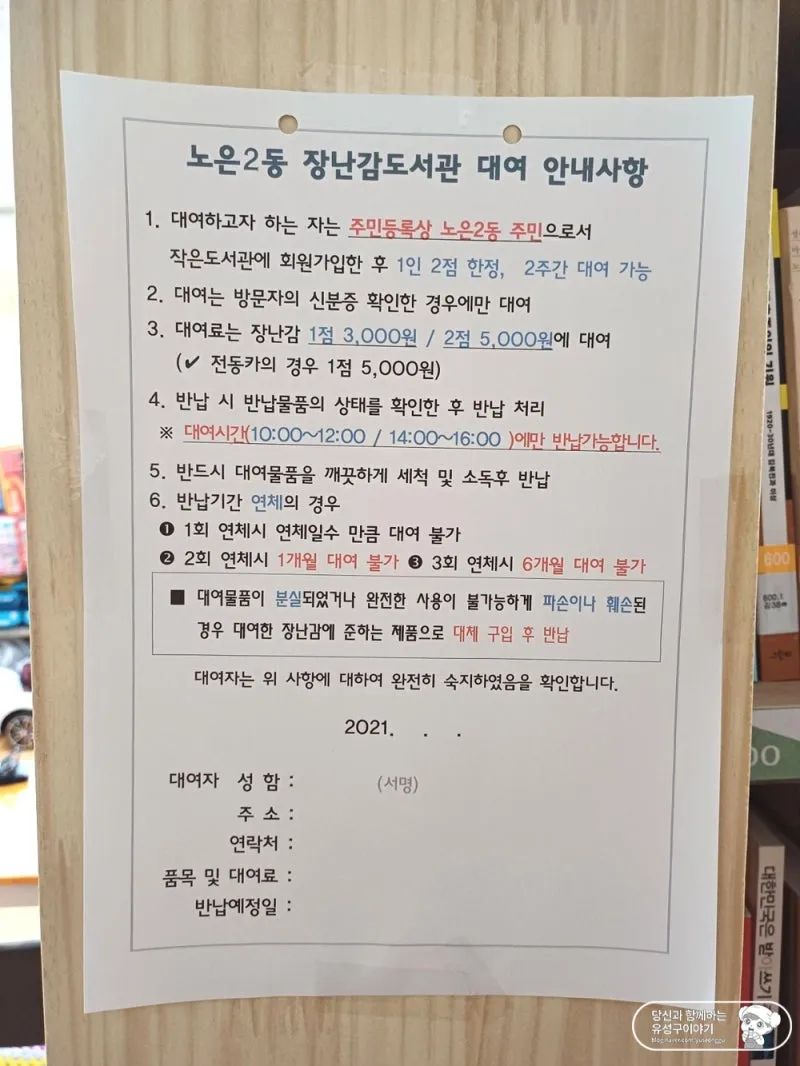 노은2동 장난감도서관 대여 안내사항
1. 대여하고자 하는 자는 주민등록상 노은2동 주민으로서
작은도서관에 회원가입한 후 1인 2점 한정, 2주간 대여 가능
2. 대여는 방문자의 신분증 확인한 경우에만 대여
3. 대여료는 장난감 1점 3,000원 / 2점 5,000원에 대여
(✔ 전동카의 경우 1점 5,000원)
4. 반납 시 반납물품의 상태를 확인한 후 반납 처리
※ 대여시간(10:00~12:00 / 14:00~16:00 )에만 반납가능합니다.
5. 반드시 대여물품을 깨끗하게 세척 및 소독후 반납
6. 반납기간 연체의 경우
❶ 1회 연체시 연체일수 만큼 대여 불가
❷ 2회 연체시 1개월 대여 불가 ❸ 3회 연체시 6개월 대여 불가
■ 대여물품이 분실되었거나 완전한 사용이 불가능하게 파손이나 훼손된
경우 대여한 장난감에 준하는 제품으로 대체 구입 후 반납
대여자는 위 사항에 대하여 완전히 숙지하였음을 확인합니다.
2021. . .
대여자 성 함 : (서명)
주 소 :
연락처 :
품목 및 대여료 :
반납예정일 :
600
600.1
대한민국은 받아쓰기
당신과 함께하는
유성구이야기
blog.naver.com/yuseonggu